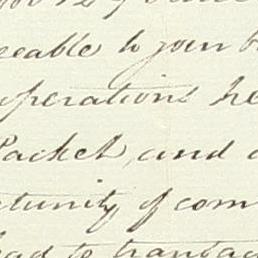 eeable to your
operations he
Packet, and a
rtunity of com
had to transac